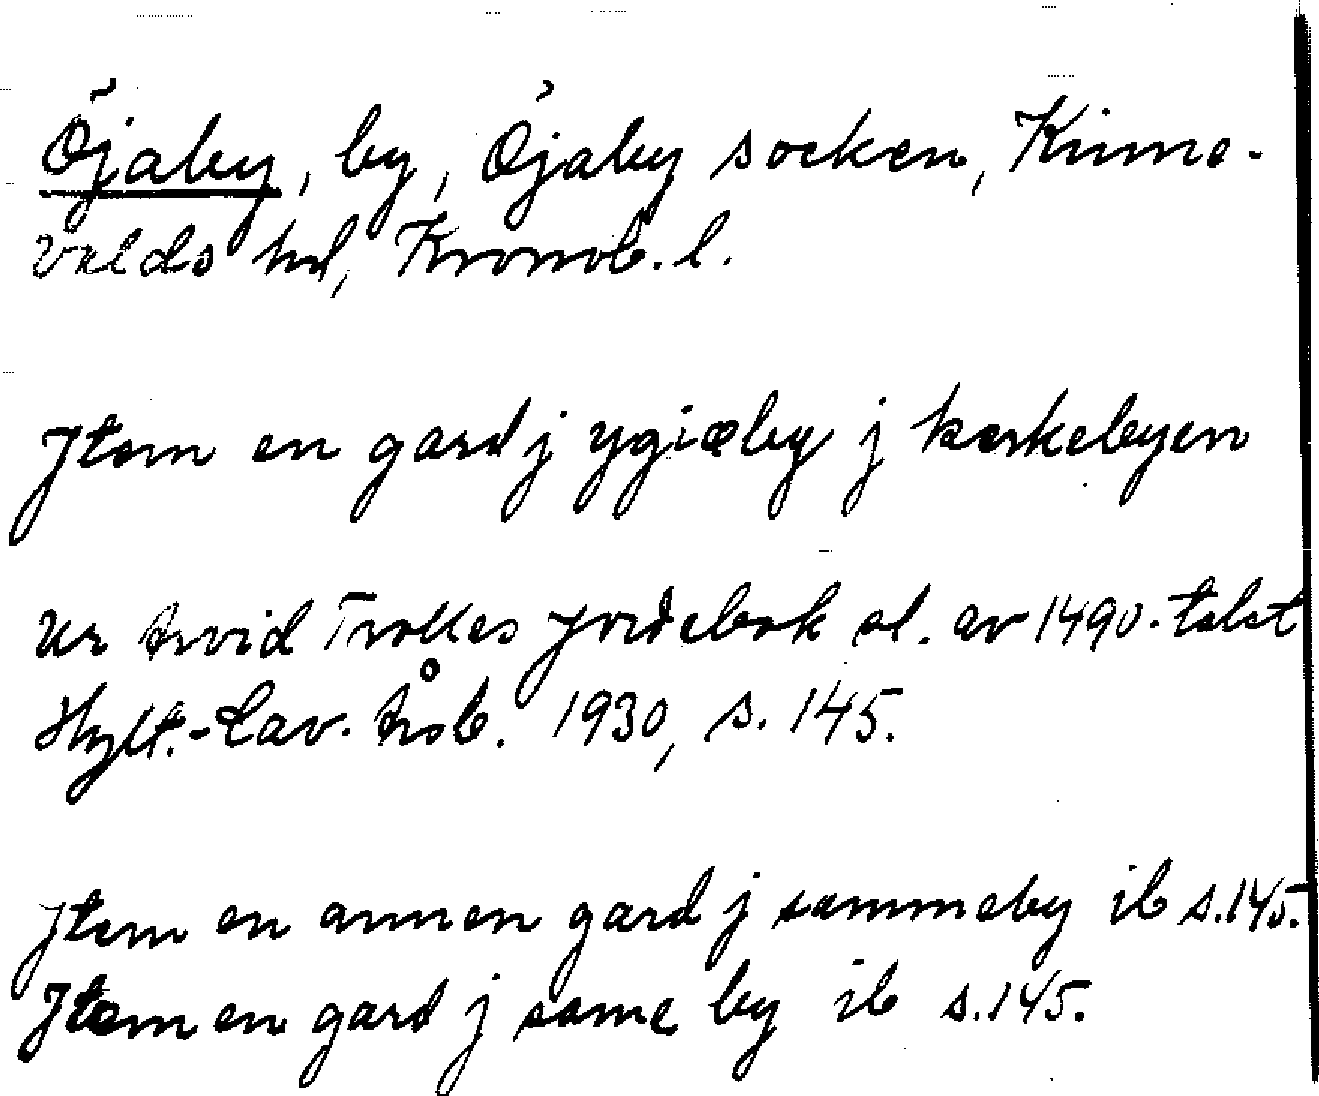 Öjaby, by, Öjaby socken, Kinne-
valds hd, Kronob. l.
Jtem en gard j ygiæby j kerkebyen
Ur Arvid Trolles jordebok sl. av 1490-talet
Hylt.-Cav. Årsb. 1930, s. 145.
Jtem en annen gard j sammeby ib s.145.
Jtem en gard j same by ib s.145.